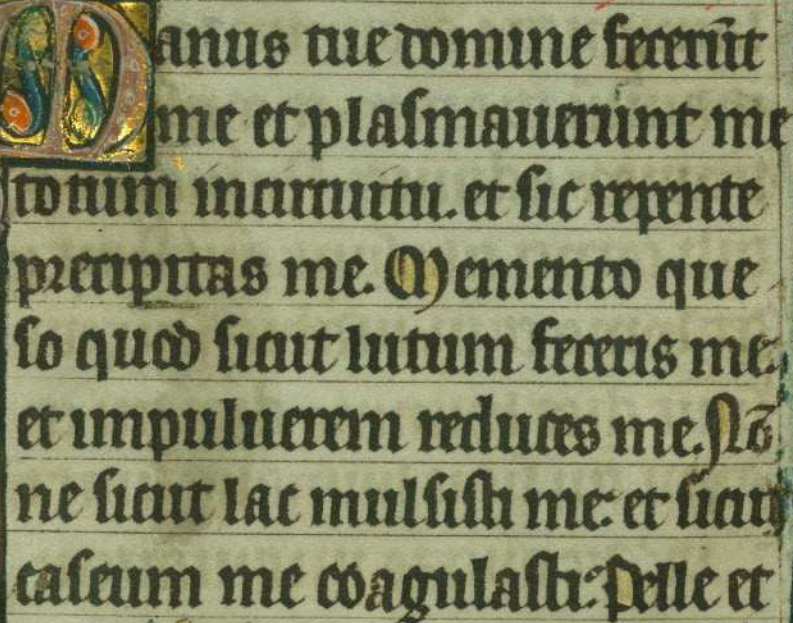 Manus tue domine fecerūt
me et plasmauerunt me
totum incircuitu. et sic repente
precipitas me. Memento que
so quod sicut lutum feceris me.
et impuluerem reduces me. Nō
ne sicut lac mulsisti me: et sicut
caseum me coagulasti: Pelle et